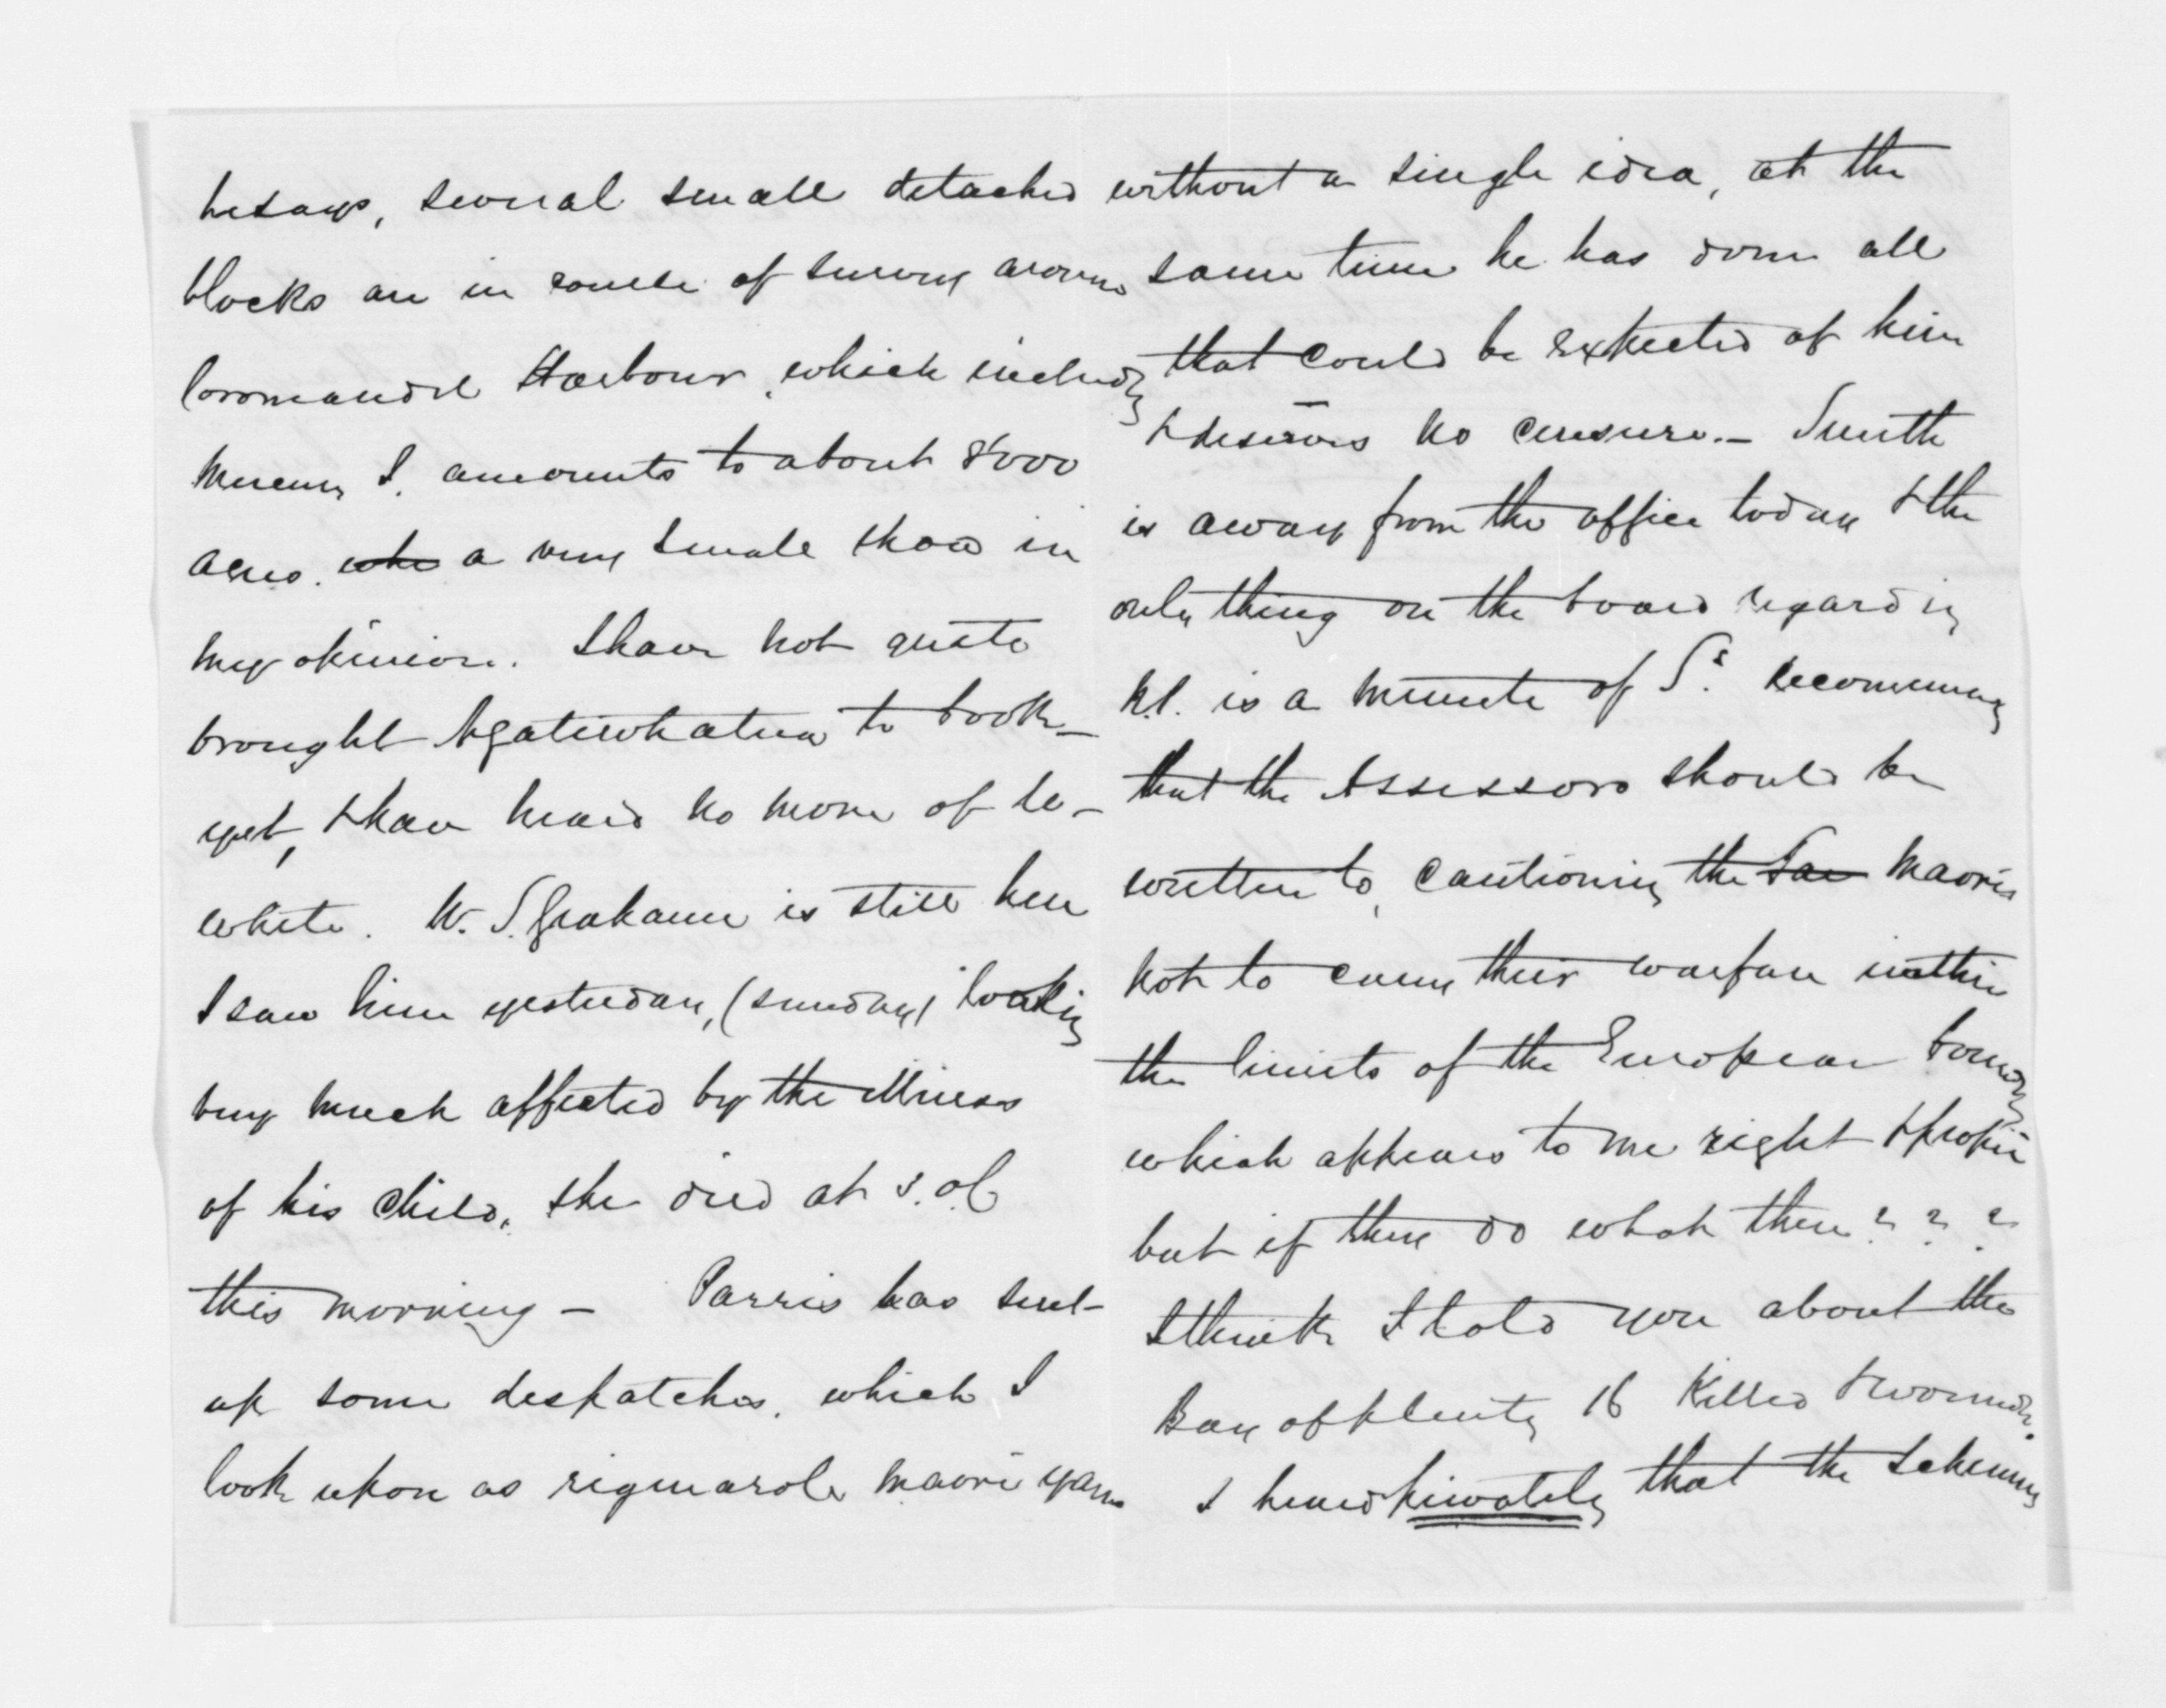 he says, several small detached
blocks are in course of survey around
Coromandel Harbour, which including
Mercury I. amounts to about 8000
acres. a very small show in
my opinion. I have not quite
brought Ngatiwhatua to book
yet, & have heard no more of Te-
white. W. S. Grahame is still here
I saw him yesterday, (Sunday) looking
very much affected by the illness
of his child. She died at
this morning – Parris has sent
up some despatches, which I
look upon as rigmarole maori yarns
without a single idea, at the
same time he has done all
that could be expected of him
& deserves no censure. – Smith
is away from the office today & the
only thing on the board regarding
is a minute of S.s recommending
that the Assessors should be
written to, cautioning the Maoris
not to carry their warfare within
the limits of the European boundary
which appears to me right & proper
but if they do what then? ? ?
I think I told you about the
Bay of Plenty 16 Killed & wounded.
I heard privately that the